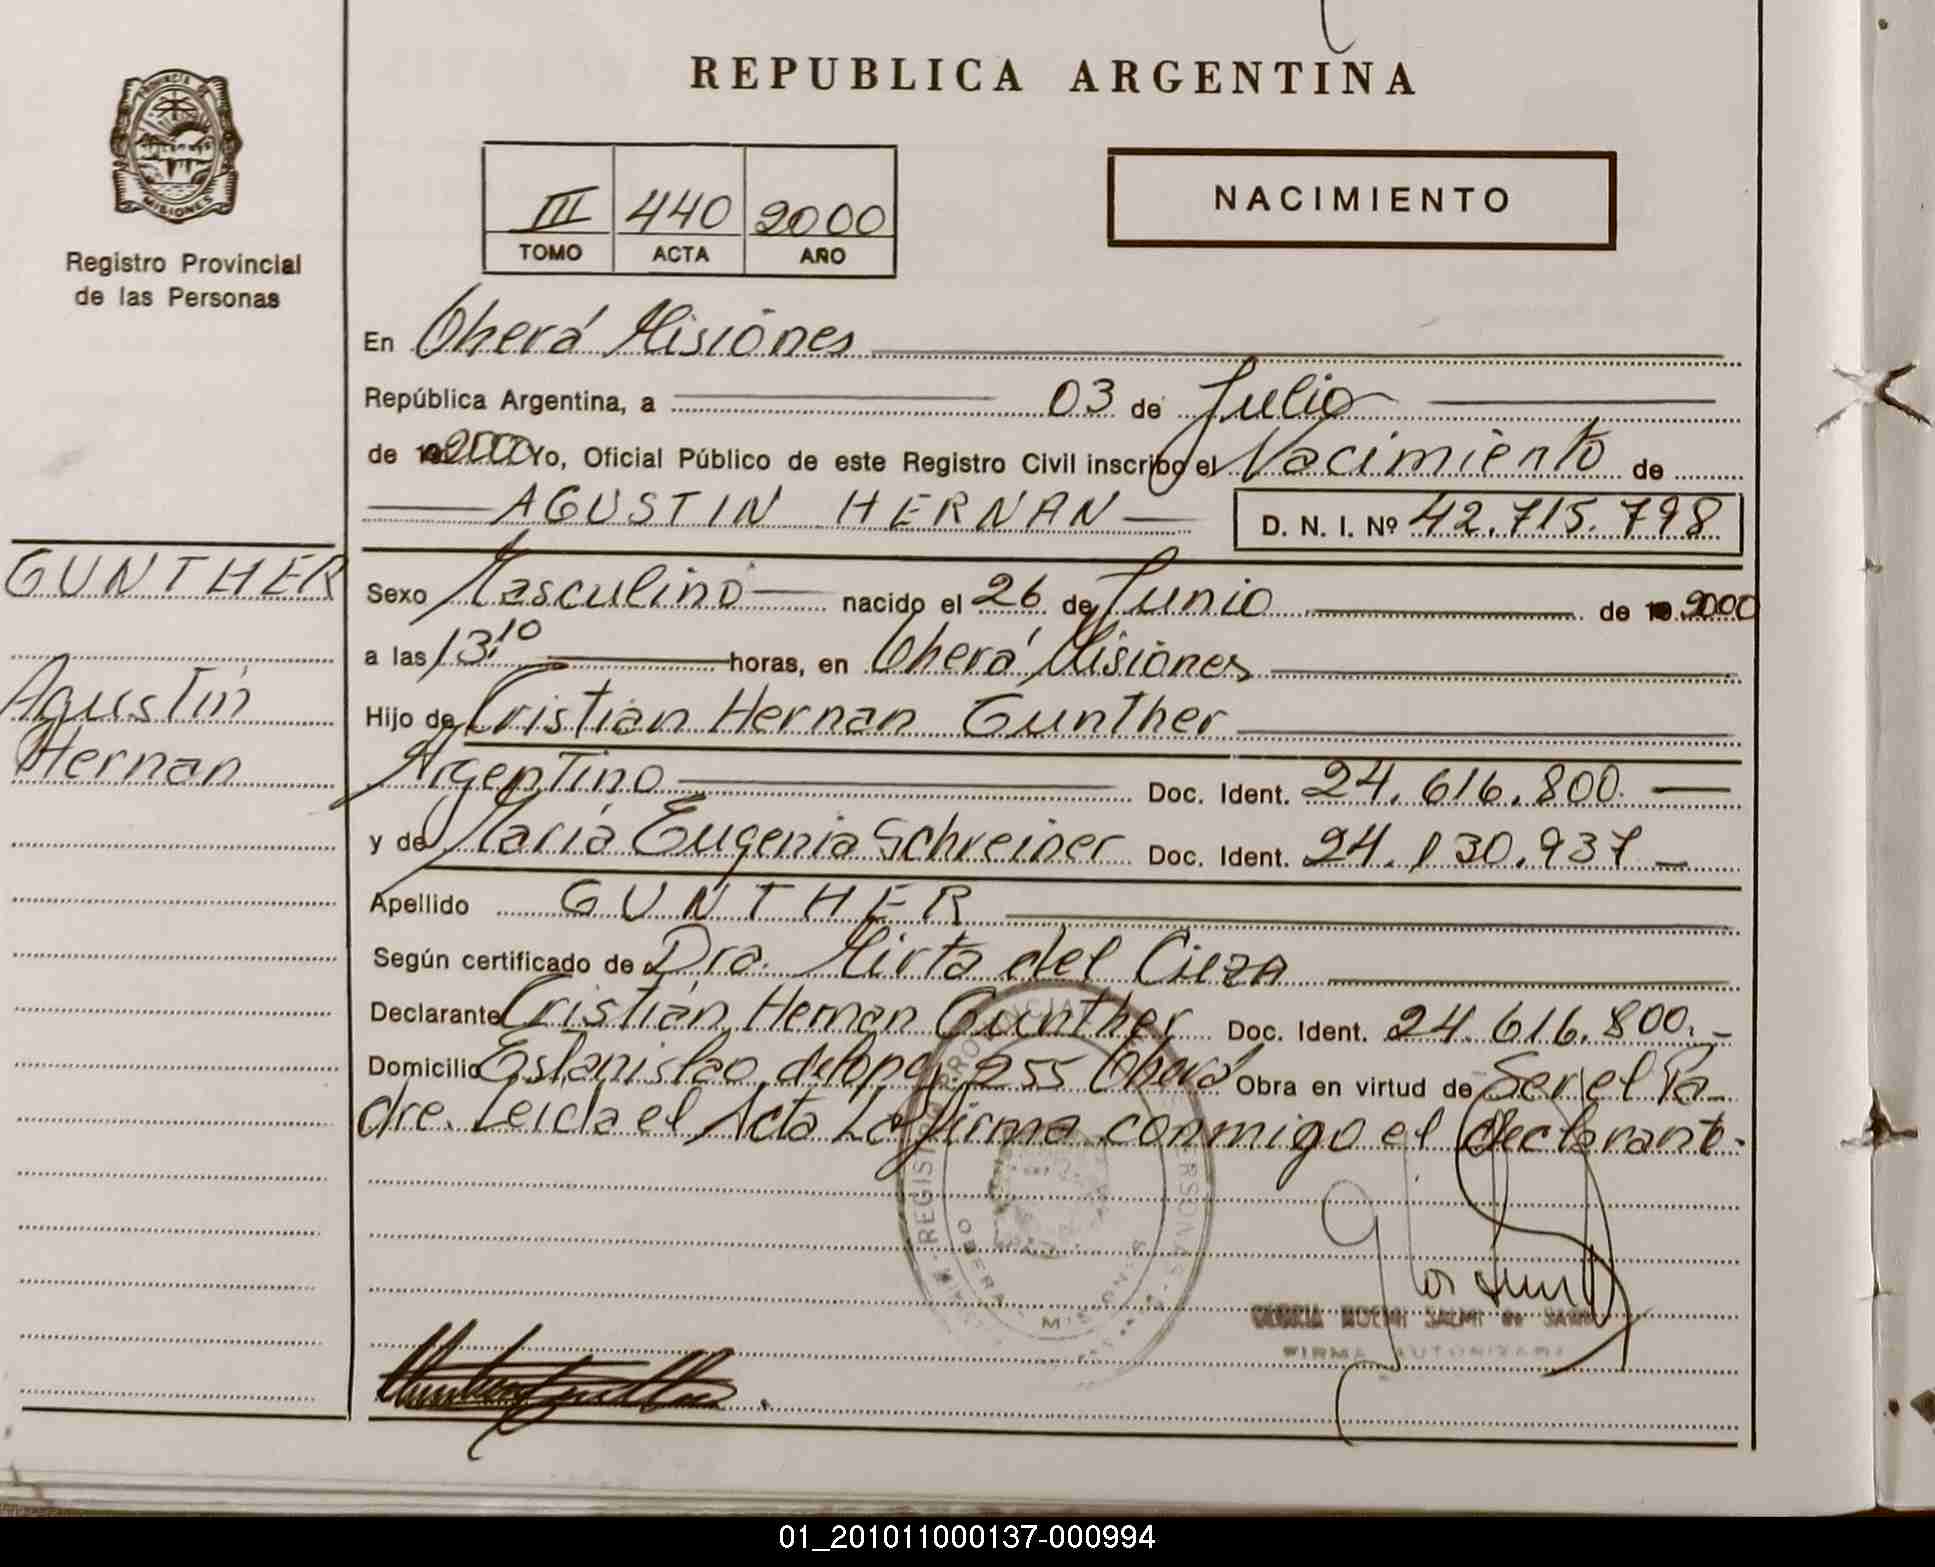 REPUBLICA ARGENTINA
PROVINCIA DE
MISIONES
Registro Provincial
de las Personas
III 440 2000
TOMO ACTA AÑO
NACIMIENTO
En Oberá Misiones
República Argentina, a 03 de Julio
de 2000 Yo, Oficial Público de este Registro Civil inscribo el Nacimiento de
AGUSTIN HERNAN D. N. I. Nº 42.715.798
GUNTHER
Agustin
Hernan
Sexo Masculino nacido el 26 de Junio de 2000
a las 13,10 horas, en Oberá Misiones
Hijo de Cristian Hernan Gunther
Argentino Doc. Ident. 24.616.800
y de Maria Eugenia Schreiner Doc. Ident. 24.130.937
Apellido GUNTHER
Según certificado de Dra. Mirta del
Declarante Cristián Hernan Gunther Doc. Ident. 24.616.800.
Domicilio Estanislao 255 Oberá Obra en virtud de Ser el Pa
dre. Leida el Acta La firma conmigo el declarante.
OBERA MISIONES
NOEMI SALMI de
FIRMA AUTORIZADA
01_201011000137-000994